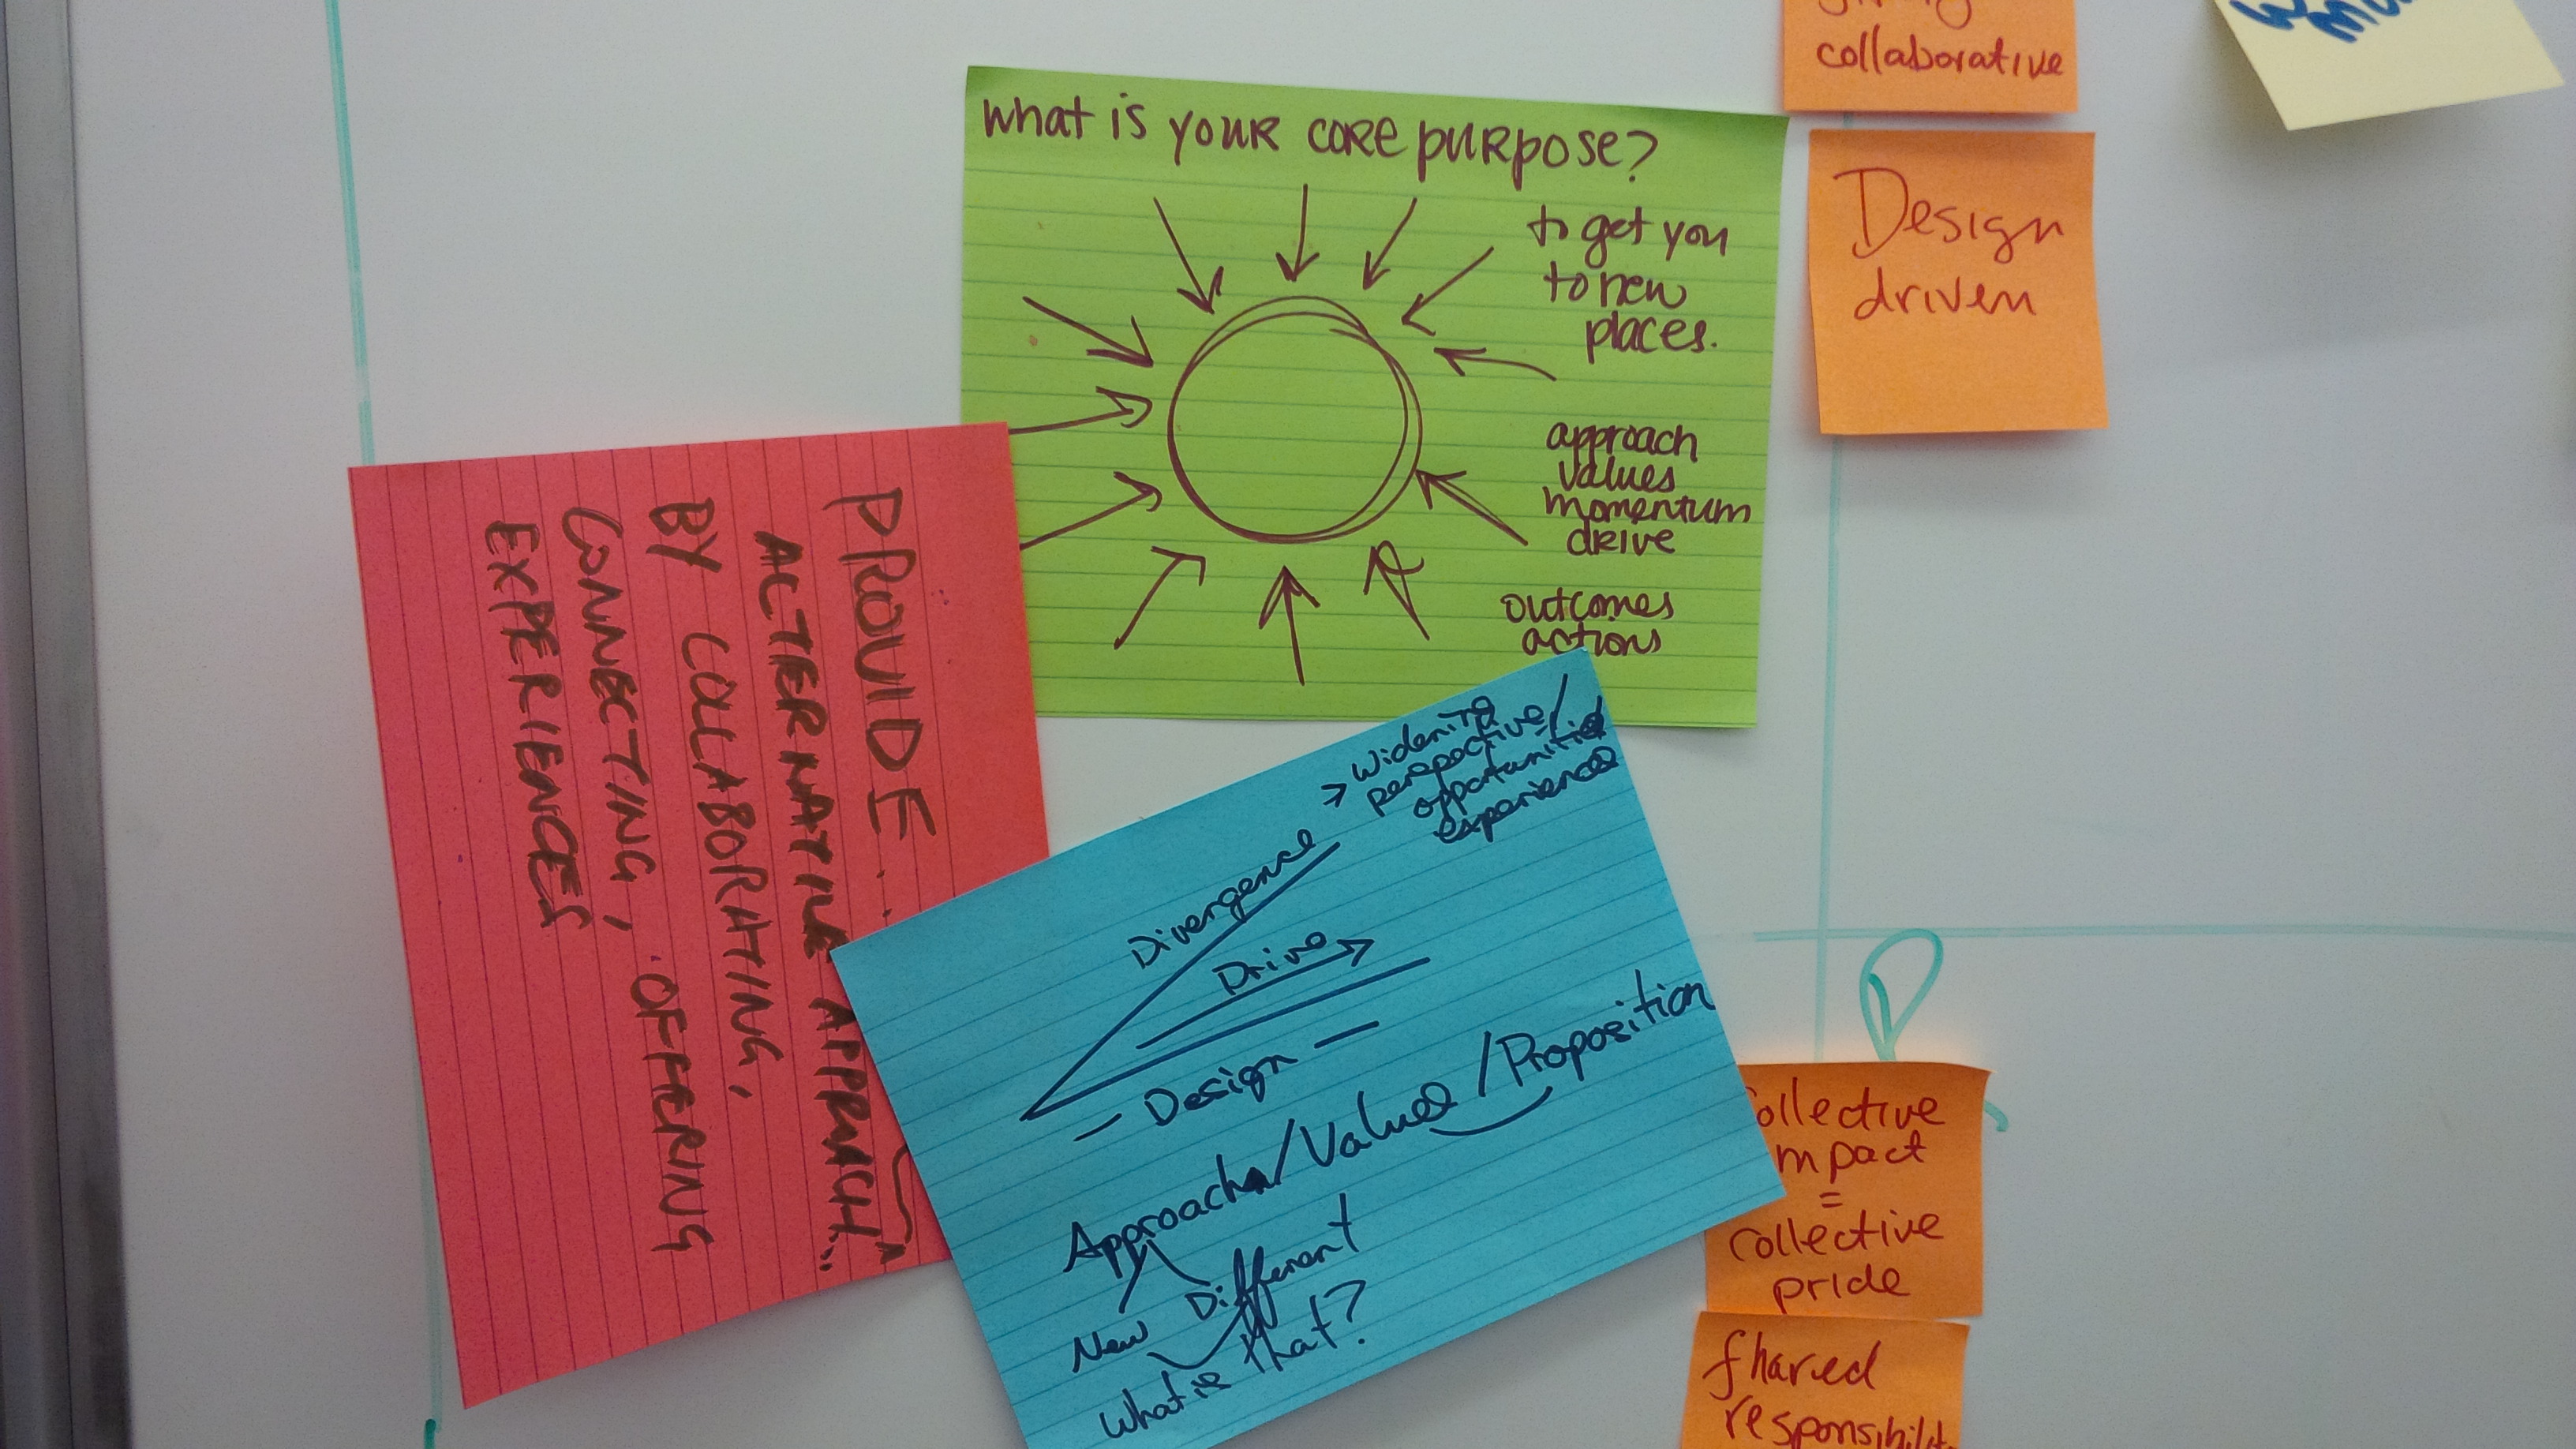 collaborative
what is your core purpose?
to get you
to new
places.
approach
values
momentum
drive
outcomes
actions
Design
driven
PROVIDE...
ALTERNATIVE APPROACH...
BY COLLABORATING,
CONNECTING, OFFERING
EXPERIENCES
→ widening
perspective/
opportunities
experiences
Divergence
Drive
— Design —
Approach/Values/Proposition
New Different
What is that?
collective
impact
=
collective
pride
shared